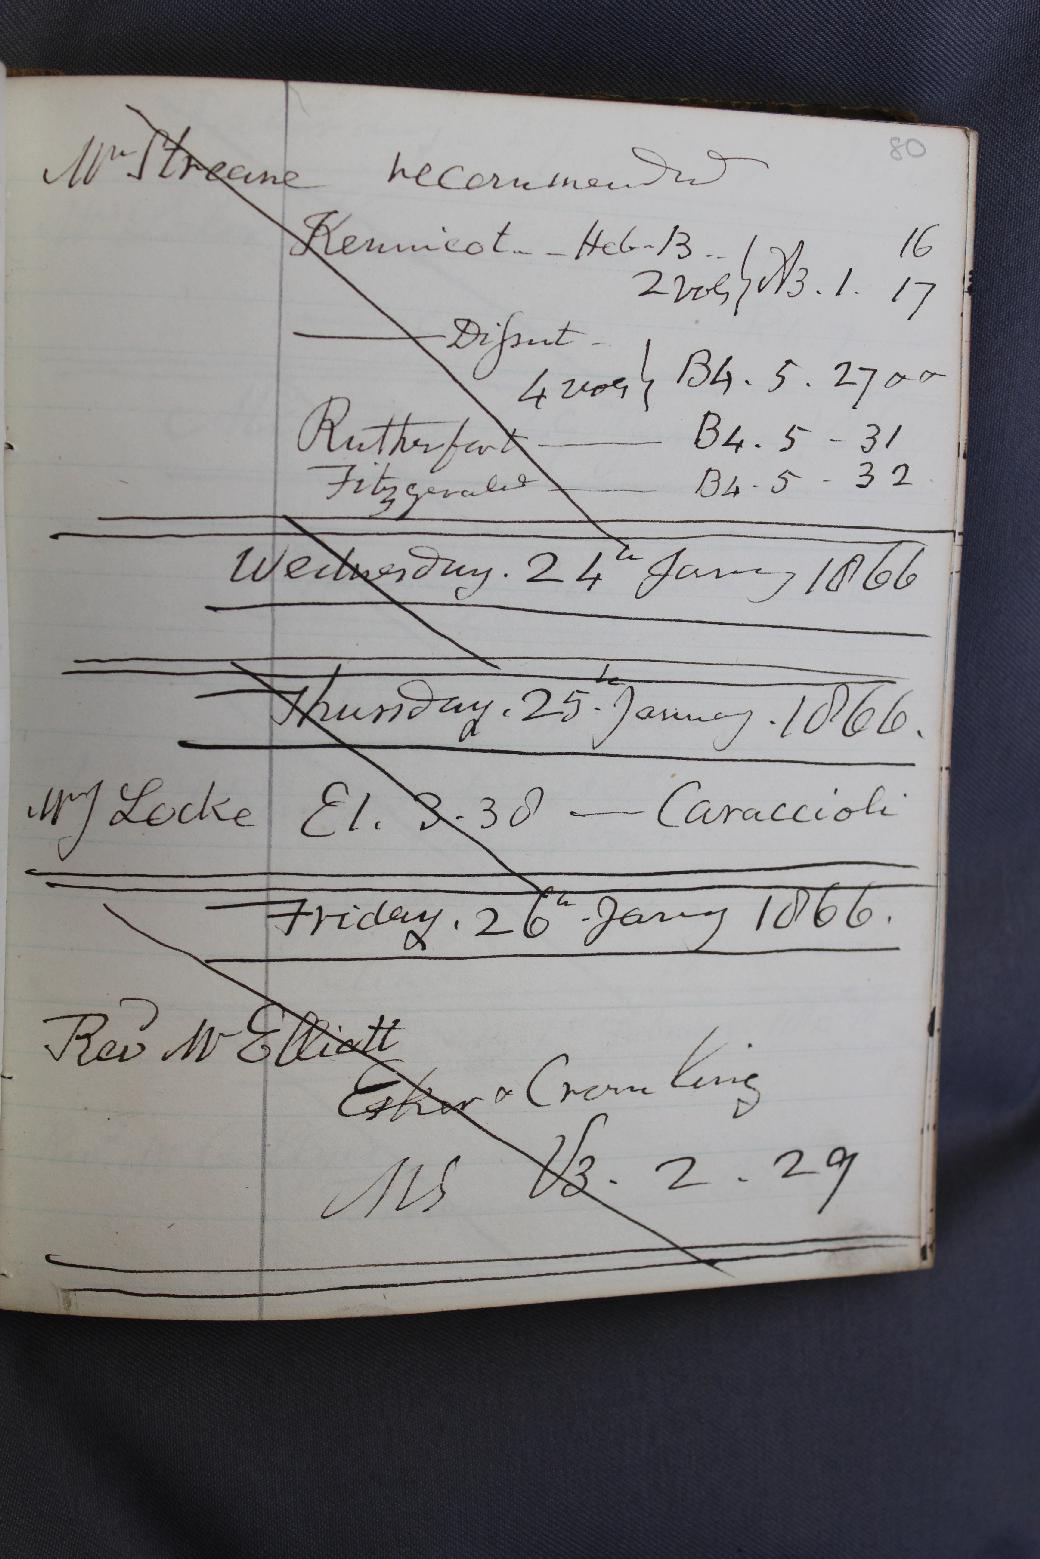 80
Mr Streane recommended
Kennicot - Heb. B.. } 16
2 vols } A3. 1. 17
—— Dissert -
4 vols } B4. 5. 27
Rutherfort —— B4. 5 - 31
Fitzgerald —— B4. 5 - 32
Wednesday. 24th Jany 1866
Thursday. 25th January. 1866.
Mr J Locke E1. 3. 38 — Caraccioli
Friday. 26th Jany 1866.
Revd Mr Elliott
Esker & Crom King
MS V3. 2. 29